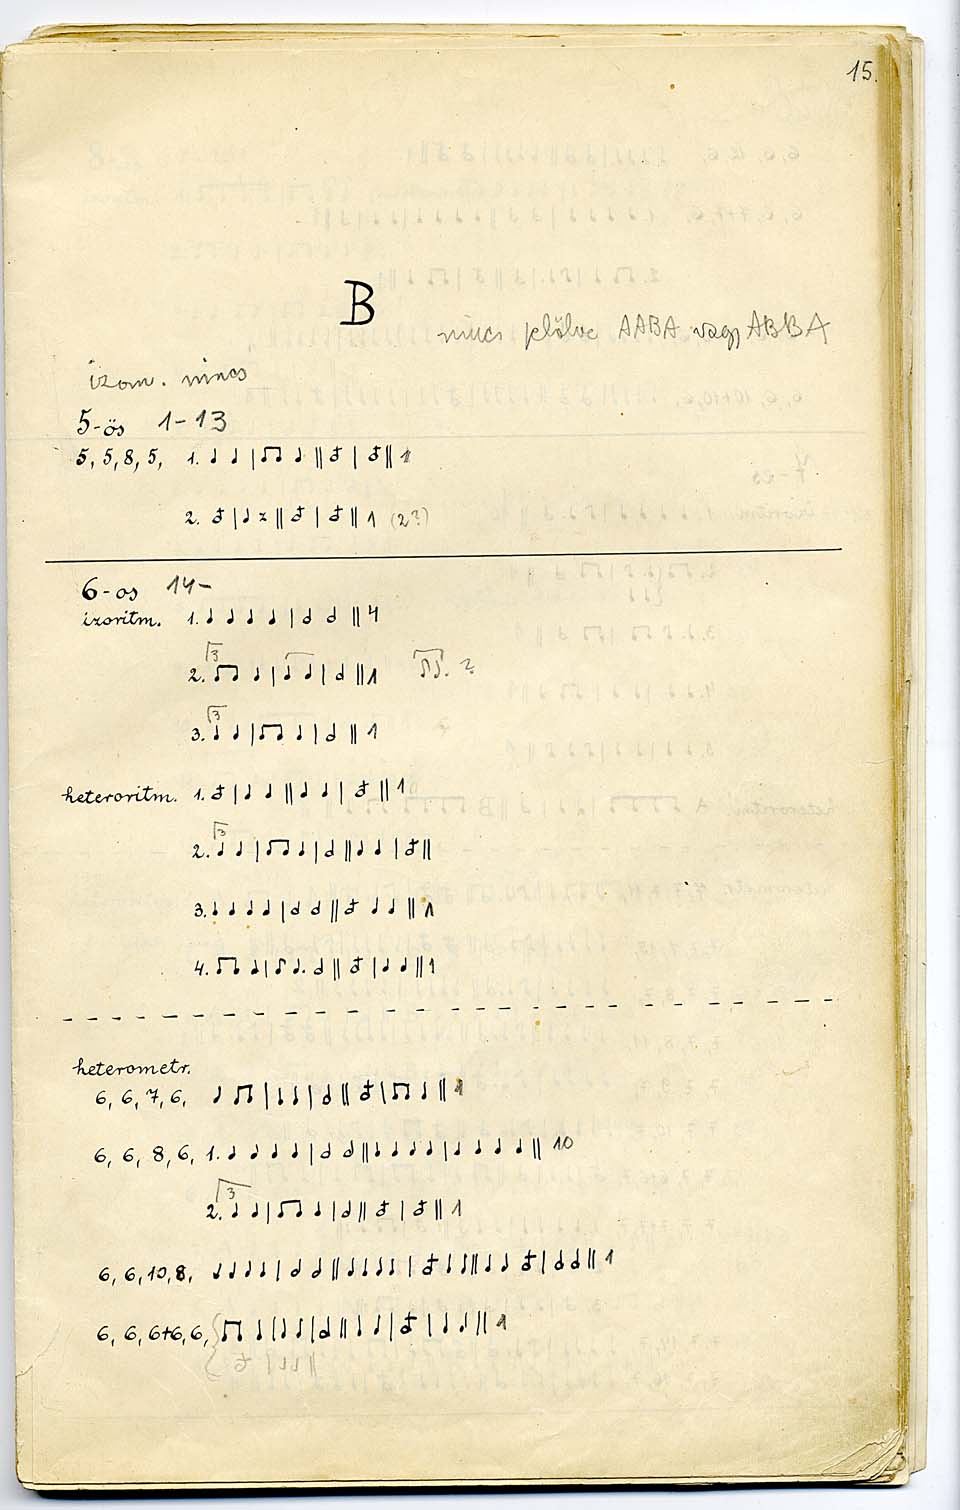 15.
B
nincs jelölve AABA vagy ABBA
izom. nincs
5-ös 1-13
5, 5, 8, 5, 1. 1
2. 1 (2?)
6-os 14-
izoritm. 1. 4
3
2. 1 ?
3
3. 1
heteroritm. 1. 1
3
2.
3. 1
4. 1
heterometr.
6, 6, 7, 6, 1
6, 6, 8, 6, 1. 10
3
2. 1
6, 6, 10, 8, 1
6, 6, 6+6, 6, 1